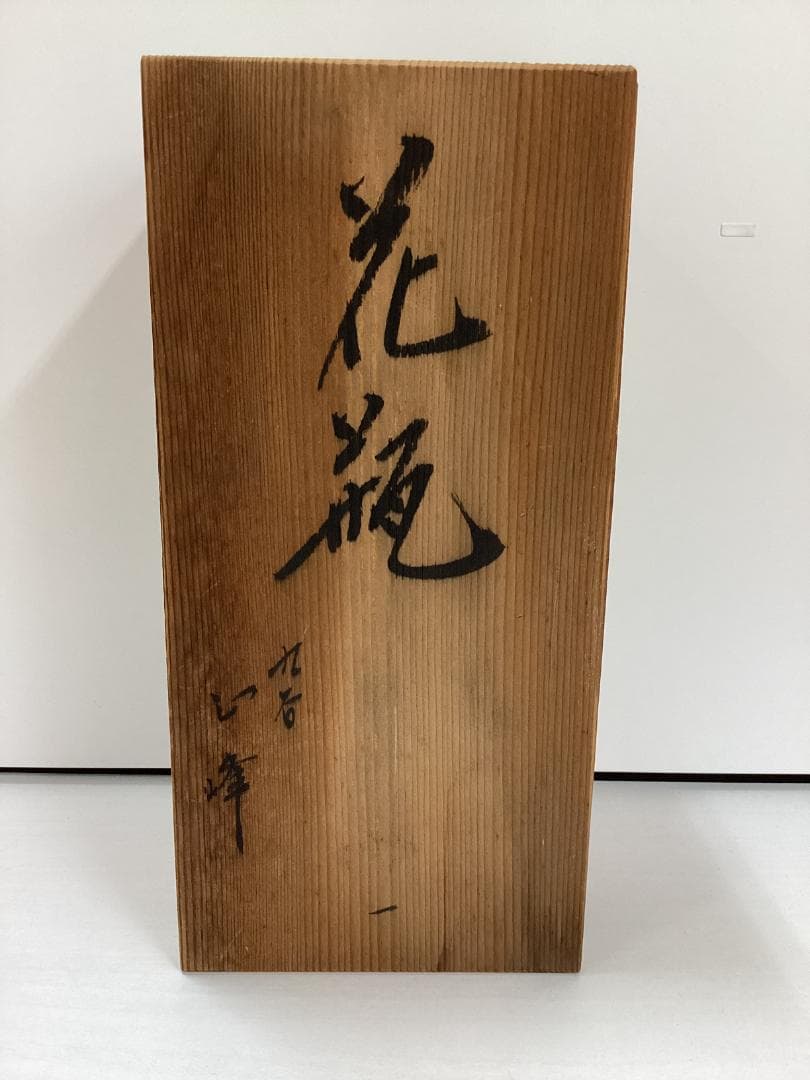 花瓶
九谷
峰
一